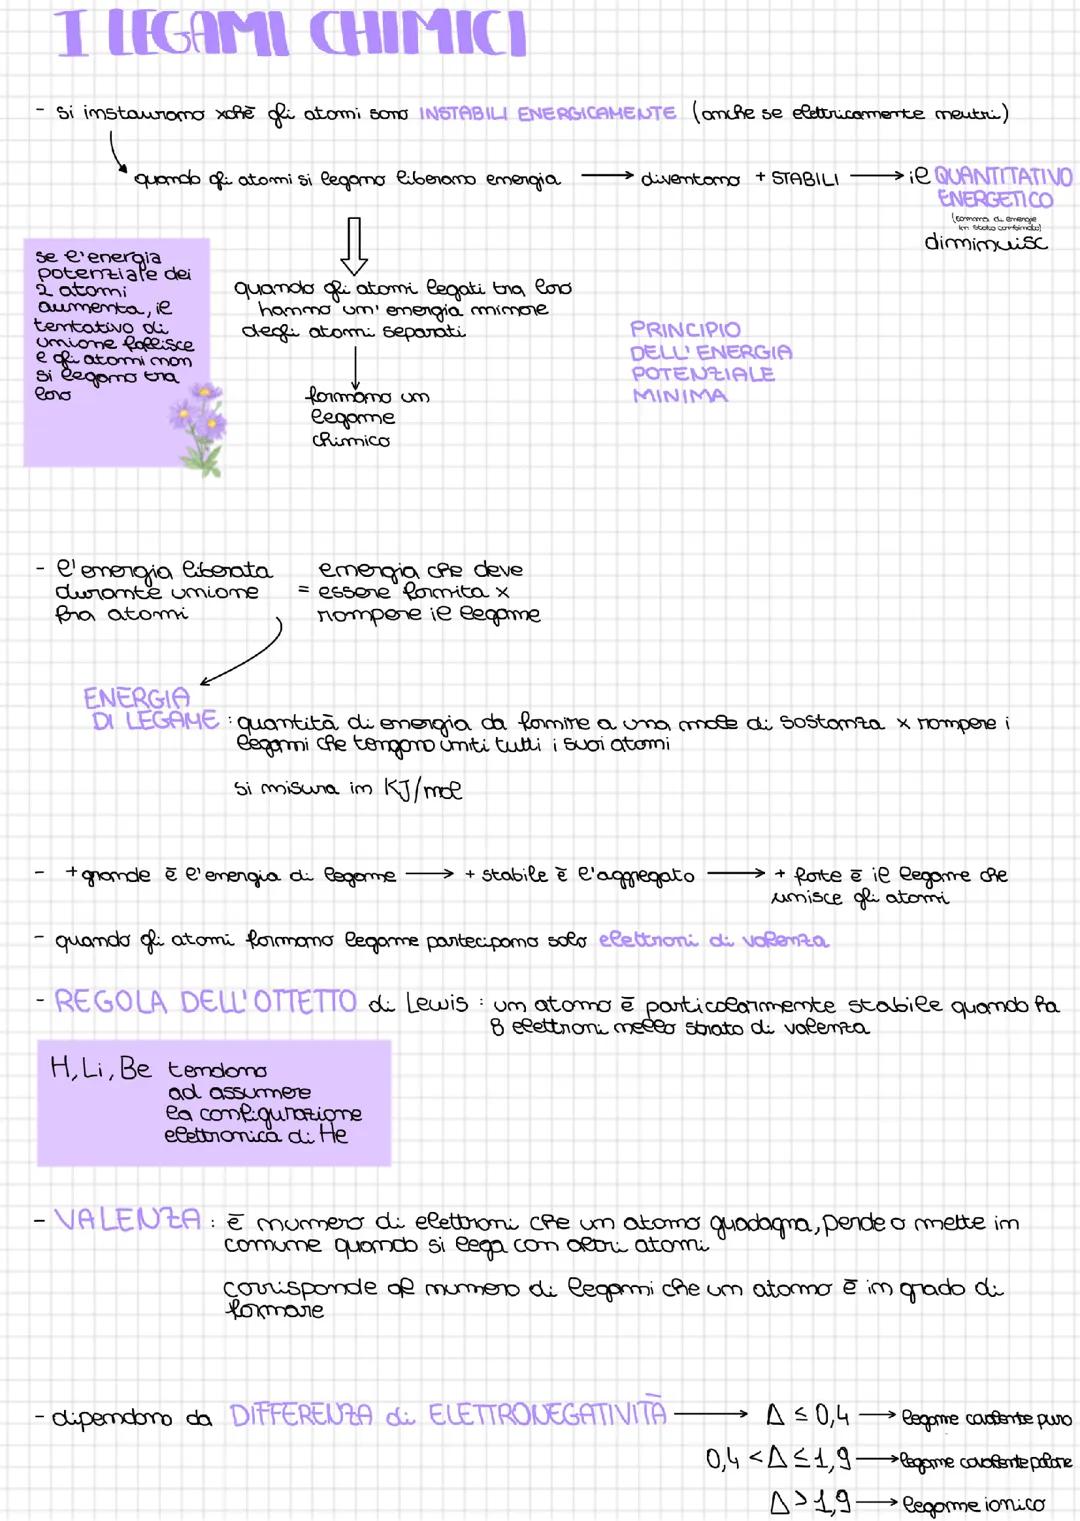 I LEGAMI CHIMICI
- si instaurano xchè gli atomi sono INSTABILI ENERGICAMENTE (anche se elettricamente neutri)
quando gli atomi si legano liberano energia → diventano + STABILI → il QUANTITATIVO
ENERGETICO
in stato combinato)
diminuisc
se l'energia
potenziale dei
2 atomi
aumenta, il
tentativo di
unione fallisce
e gli atomi non
si legano tra
loro
quando gli atomi legati tra loro
hanno un' energia minore
degli atomi separati
formano un
legame
chimico
PRINCIPIO
DELL' ENERGIA
POTENZIALE
MINIMA
- l'energia liberata
durante unione
fra atomi
energia che deve
= essere fornita x
rompere il legame
ENERGIA
DI LEGAME : quantità di energia da fornire a una mole di sostanza x rompere i
legami che tengono uniti tutti i suoi atomi
si misura in KJ/mol
- + grande è l'energia di legame → + stabile è l'aggregato → + forte è il legame che
unisce gli atomi
- quando gli atomi formano legame partecipano solo elettroni di valenza
- REGOLA DELL'OTTETTO di Lewis : un atomo è particolarmente stabile quando ha
8 elettroni nello strato di valenza
H, Li, Be tendono
ad assumere
la configurazione
elettronica di He
- VALENZA : è numero di elettroni che un atomo guadagna, perde o mette in
comune quando si lega con altri atomi
corrisponde al numero di legami che un atomo è in grado di
formare
- dipendono da DIFFERENZA di ELETTRONEGATIVITÀ → Δ ≤ 0,4 → legame covalente puro
0,4 < Δ ≤ 1,9 → legame covalente polare
Δ > 1,9 → legame ionico